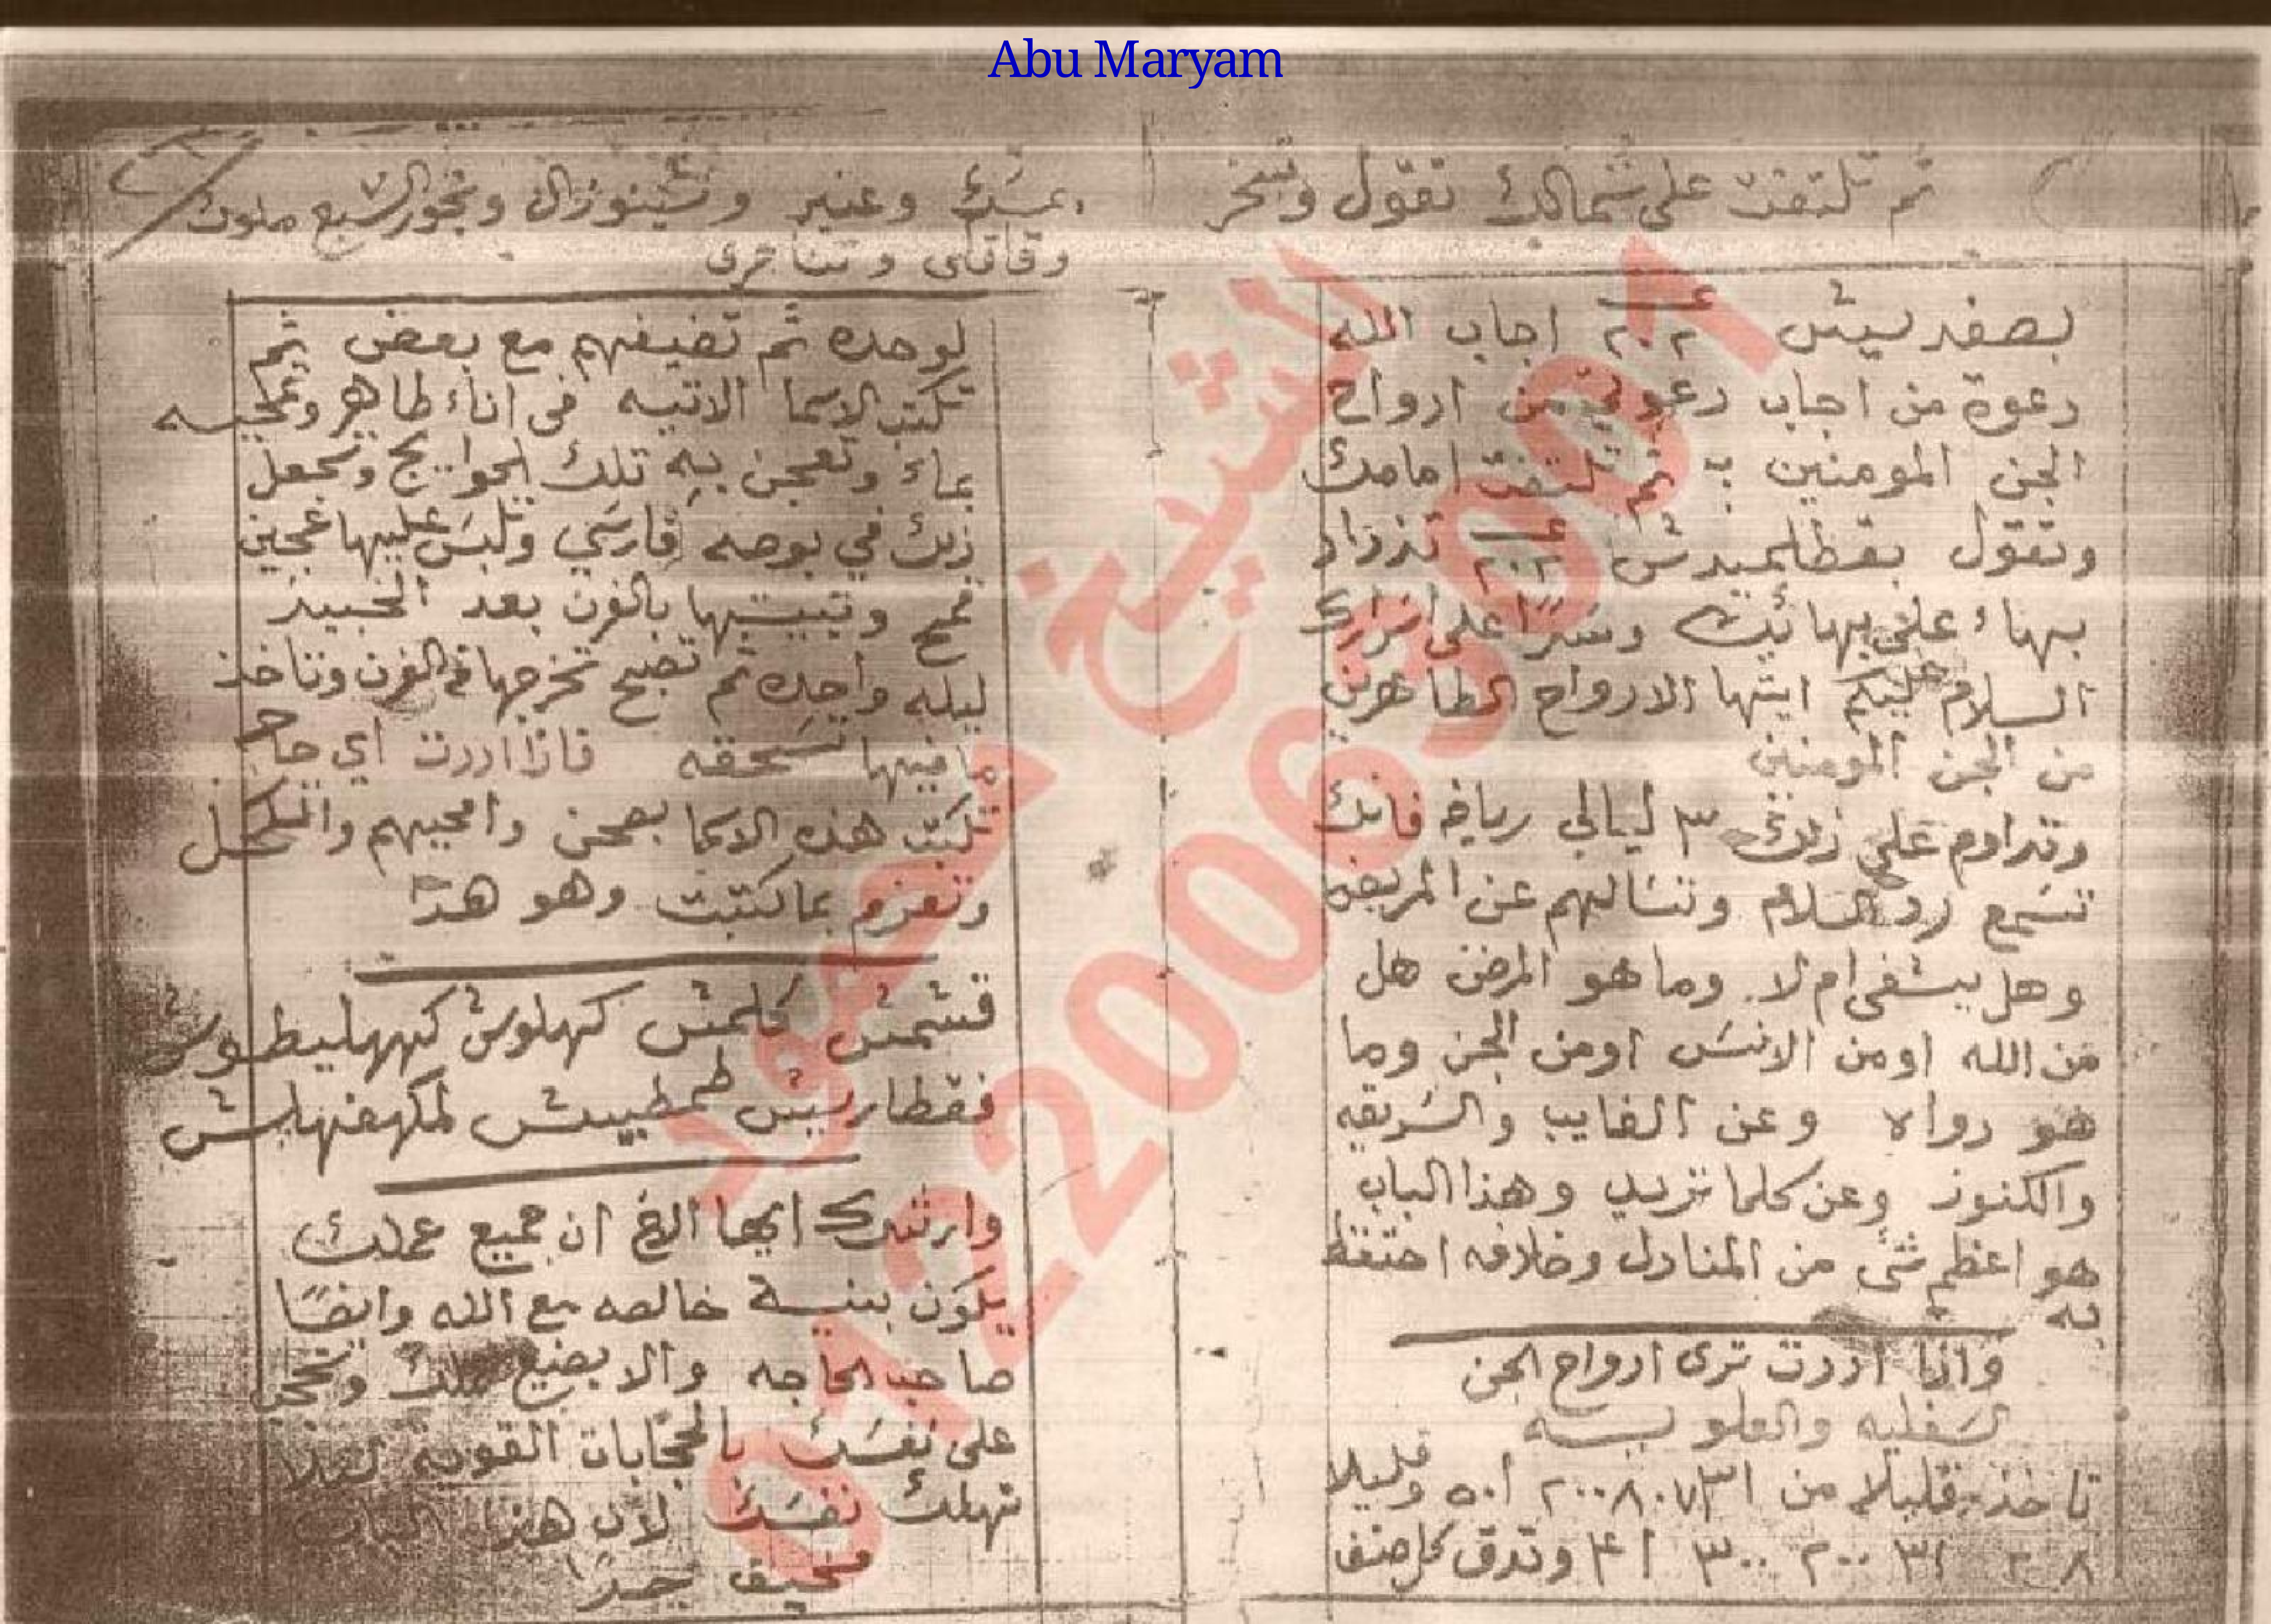 Abu Maryam
ثم تلتفت على شمالك تقول وتبخر
بصفدييش عـ ٢٠٢ اجاب الله
دعوة من اجاب دعوتي من ارواح
الجن المومنين ؛ ثم تلتفت امامك
وتقول بقطلميدش عـ ٢٠٢ تزداد
بهاء على بهائك وسرًا على اسرارك
السلام عليكم ايتها الارواح الطاهرين
من الجن المومنين
وتداوم على ذلك ٣ ليالي رياضه فانك
تسمع رد السلام وتسالهم عن المريض
وهل يشفى ام لا وما هو المرض هل
من الله اومن الانس اومن الجن وما
هو دواه وعن الغايب والسريقه
والكنوز وعن كلما تريد وهذا الباب
هو اعظم شئ من المنادل وخلافه احتفظ
به
واذا اردت ترى ارواح الجن
السفليه والعلويـــه
تاخذ قليلا من ٢٠٠٨٠٧٣١ ٥٠١ وقليلا
٣٠٠ ٢٠٠ ٣١ ٤١ وتدق كل صنف
مسك وعنبر وبخور السبع ملوك
وقاقلى
لوحده ثم تضيفهم مع بعض ثم
تكتب الاسما الاتيه فى اناء طاهر وتمحيـه
بماء وتعجن به تلك الحوايج وتجعل
ذلك في بوصه فارسي وتلبس عليها عجين
قمح وتبيتها بالفرن بعد الخبيز
ليله واحده ثم تصبح تخرجها من الفرن وتاخذ
ما فيها تسحقه فاذا اردت اي حاجه
تكتب هذه الاسما بصحن وامحيهم والتكحل
وتعزم بما كتبت وهو هذا
قشمش كلمش كهلوش كههليطوش
فقطاريش طمطييش لمكهفنهايش
وارشدك ايها الاخ ان جميع عملك
يكون بنيـة خالصه مع الله وايضًا
صاحب الحاجه والا يضيع عملك وتحجب
على نفسك بالحجابات القويه لئلا
تهلك نفسك لان هذا الباب
مخيف جدًا
الشيخ محمود
01220063001